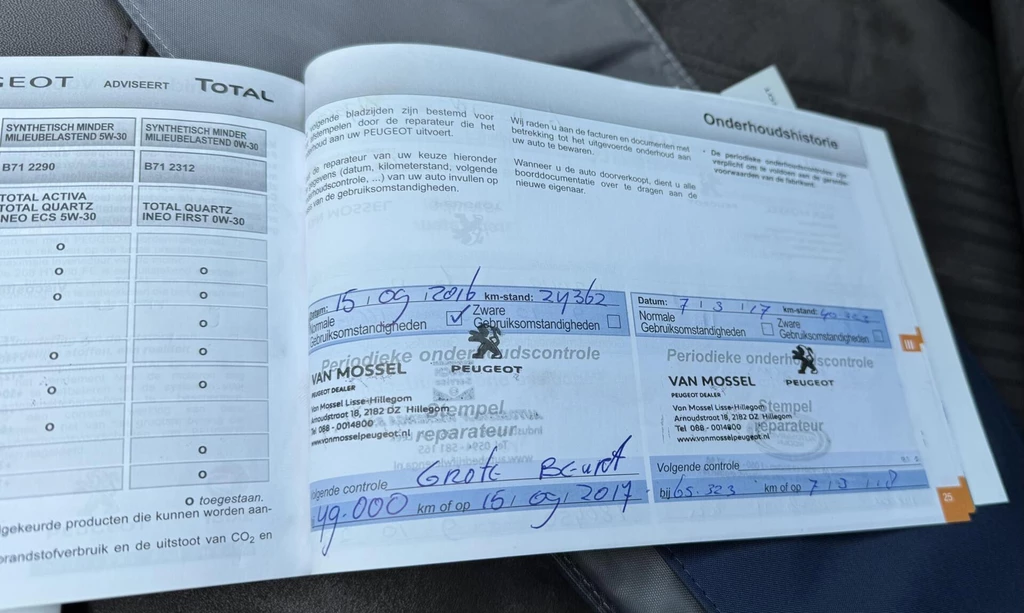 GEOT ADVISEERT TOTAL
SYNTHETISCH MINDER
MILIEUBELASTEND 5W-30
SYNTHETISCH MINDER
MILIEUBELASTEND 0W-30
B71 2290
B71 2312
TOTAL ACTIVA
TOTAL QUARTZ
INEO ECS 5W-30
TOTAL QUARTZ
INEO FIRST 0W-30
O
O O
O O
O
O O
O O
O
O
O
O toegestaan.
gekeurde producten die kunnen worden aan-
brandstofverbruik en de uitstoot van CO2 en
Onderhoudshistorie
volgende bladzijden zijn bestemd voor
stempelen door de reparateur die het
houd aan uw PEUGEOT uitvoert.
de reparateur van uw keuze hieronder
gegevens (datum, kilometerstand, volgende
houdscontrole, ...) van uw auto invullen op
van de gebruiksomstandigheden.
Wij raden u aan de facturen en documenten met
betrekking tot het uitgevoerde onderhoud aan
uw auto te bewaren.
Wanneer u de auto doorverkoopt, dient u alle
boorddocumentatie over te dragen aan de
nieuwe eigenaar.
• De periodieke onderhoudscontroles zijn
verplicht om te voldoen aan de garantie-
voorwaarden van de fabrikant.
Datum: 15 / 09 / 2016 km-stand: 24362
Normale
Gebruiksomstandigheden
Zware
Gebruiksomstandigheden
Periodieke onderhoudscontrole
VAN MOSSEL PEUGEOT
PEUGEOT DEALER
Van Mossel Lisse-Hillegom
Arnoudstraat 18, 2182 DZ Hillegom
Tel 088 - 0014800
www.vanmosselpeugeot.nl
Stempel
reparateur
Volgende controle GROTE BEURT
49.000 km of op 15 / 09 / 2017
Datum: 7 / 3 / 17 km-stand:
Normale
Gebruiksomstandigheden
Zware
Gebruiksomstandigheden
Periodieke onderhoudscontrole
VAN MOSSEL PEUGEOT
PEUGEOT DEALER
Van Mossel Lisse-Hillegom
Arnoudstraat 18, 2182 DZ Hillegom
Tel 088 - 0014800
www.vanmosselpeugeot.nl
Stempel
reparateur
Volgende controle
bij 65.323 km of op 7 / 3 / 18
III
25